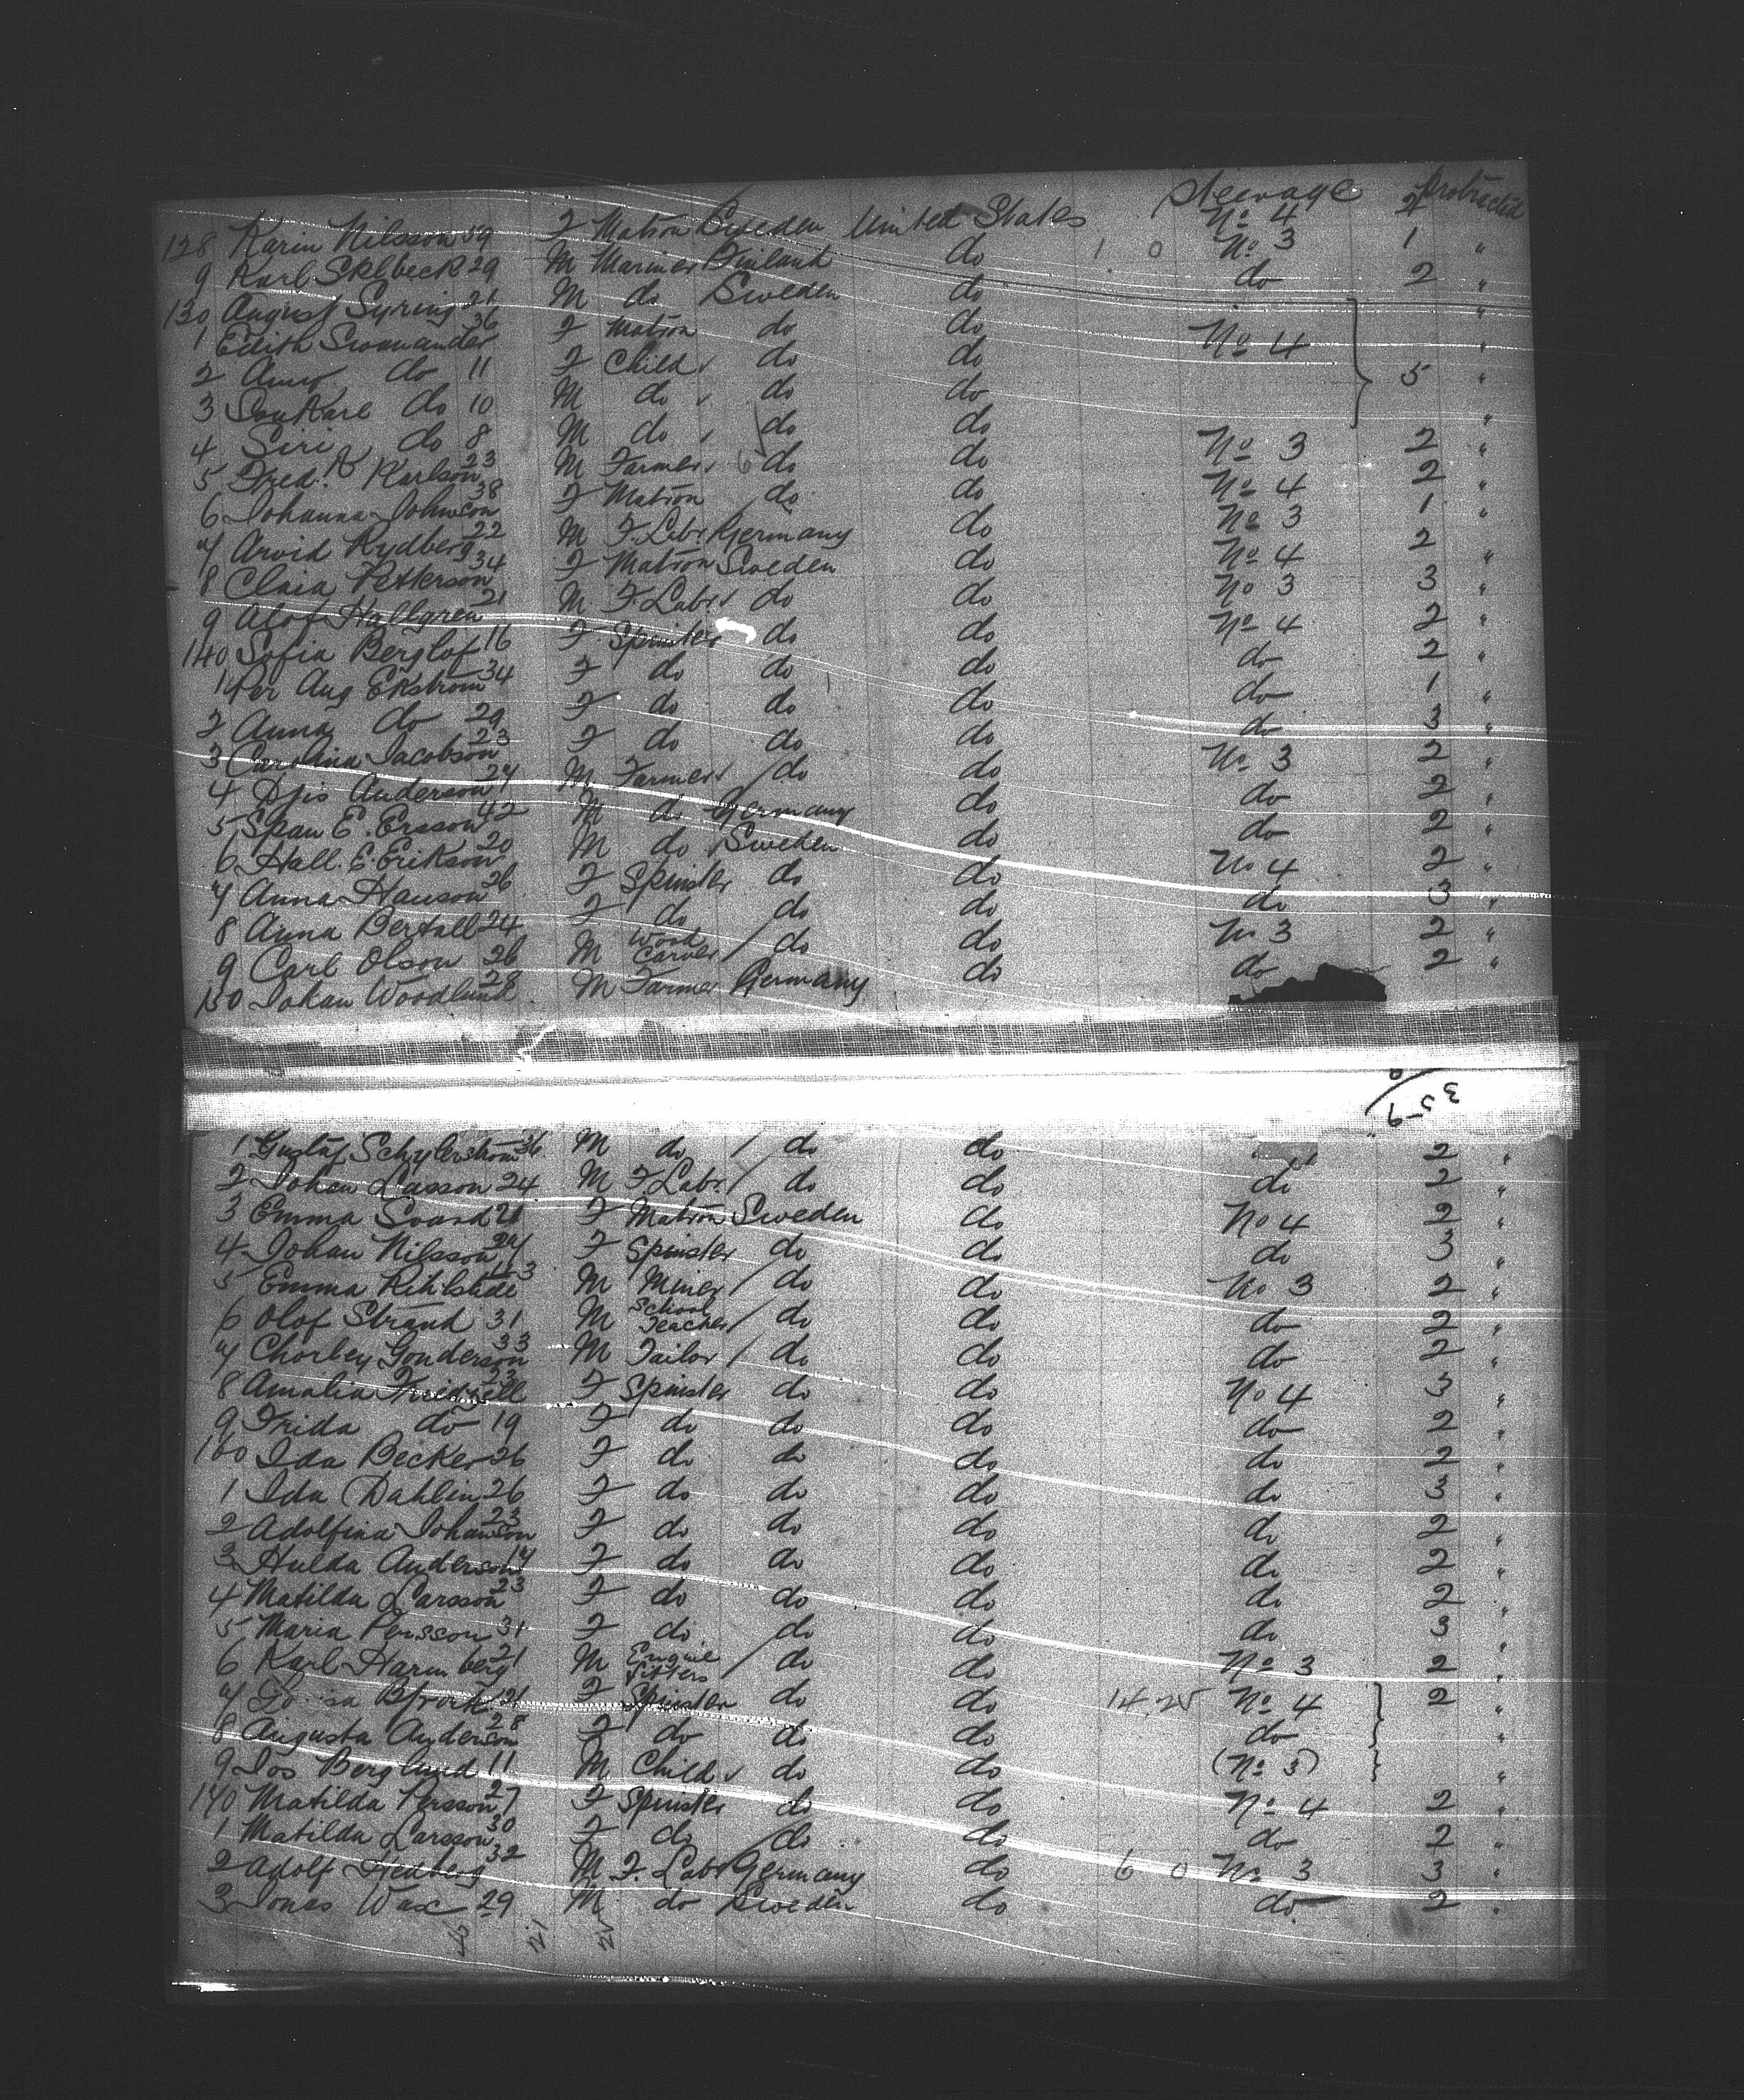 Steerage Protracted
128 Karin Nilsson 39 F Matron Sweden United States No 4 2
9 Karl Sklbeck 29 M Mariner Finland do 1 0 No 3 1 "
130 August Syring 21 M do Sweden do do 2 "
1 Edith Swanander 36 F Matron do do "
2 Anna do 11 F Child do do No 4 "
3 Jon Karl do 10 M do do do 5 "
4 Siri do 8 M do do do "
5 Fred. A Karlson 23 M Farmer do do No 3 2 "
6 Johanna Johnson 38 F Matron do do No 4 2 "
7 Arvid Rydberg 22 M F. Labr Germany do No 3 1 "
8 Claia Petterson 34 F Matron Sweden do No 4 2 "
9 Alof Hallgren 21 M F Labr do do No 3 3 "
140 Sofia Berglof 16 F Spinster do do No 4 2 "
1 Per Aug Ekstrom 34 F do do do do 2 "
2 Anna do 29 F do do do do 1 "
3 Carolina Jacobson 23 F do do do do 3 "
4 Anderson 27 M Farmer do do No 3 2 "
5 Span E. Ersson 42 M do Germany do do 2 "
6 Hall. E. Erikson 20 M do Sweden do do 2 "
7 Anna Hanson 26 F Spinster do do No 4 2 "
8 Anna Bertall 24 F do do do do 3 "
9 Carl Olson 26 M Wood Carver do do No 3 2 "
150 Johan Woodlund 28 M Farmer Germany do do 2 "
359
1 Gustaf Schylerstrom 36 M do do do " 2 "
2 Johan Lasson 24 M F. Labr do do do 2 "
3 Emma Svard 21 F Matron Sweden do No 4 2 "
4 Johan Nilsson 27 F Spinster do do do 3 "
5 Emma 43 M Miner do do No 3 2 "
6 Olof Strand 31 M School Teacher do do do 2 "
7 Chorley Gonderson 33 M Tailor do do do 2 "
8 Amalia 23 F Spinster do do No 4 3 "
9 Frida do 19 F do do do do 2 "
160 Ida Becker 26 F do do do do 2 "
1 Ida Dahlin 26 F do do do do 3 "
2 Adolfina Johanson 23 F do do do do 2 "
3 Hulda Anderson 17 F do do do do 2 "
4 Matilda Larsson 23 F do do do do 2 "
5 Maria Persson 31 F do do do do 3 "
6 Karl Harmberg 21 M Engine Fitters do do No 3 2 "
7 Bjrork 21 F Spinster do do 14.25 No 4 2 "
8 Augusta Anderson 28 F do do do do "
9 Jos Berglund 11 M Child do do (No 3) "
170 Matilda Persson 27 F Spinster do do No 4 2 "
1 Matilda Larsson 30 F do do do do 2 "
2 Adolf Hedberg 32 M F. Labr Germany do 6 0 No 3 3 "
3 Jonas Wax 29 M do Sweden do do 2 "